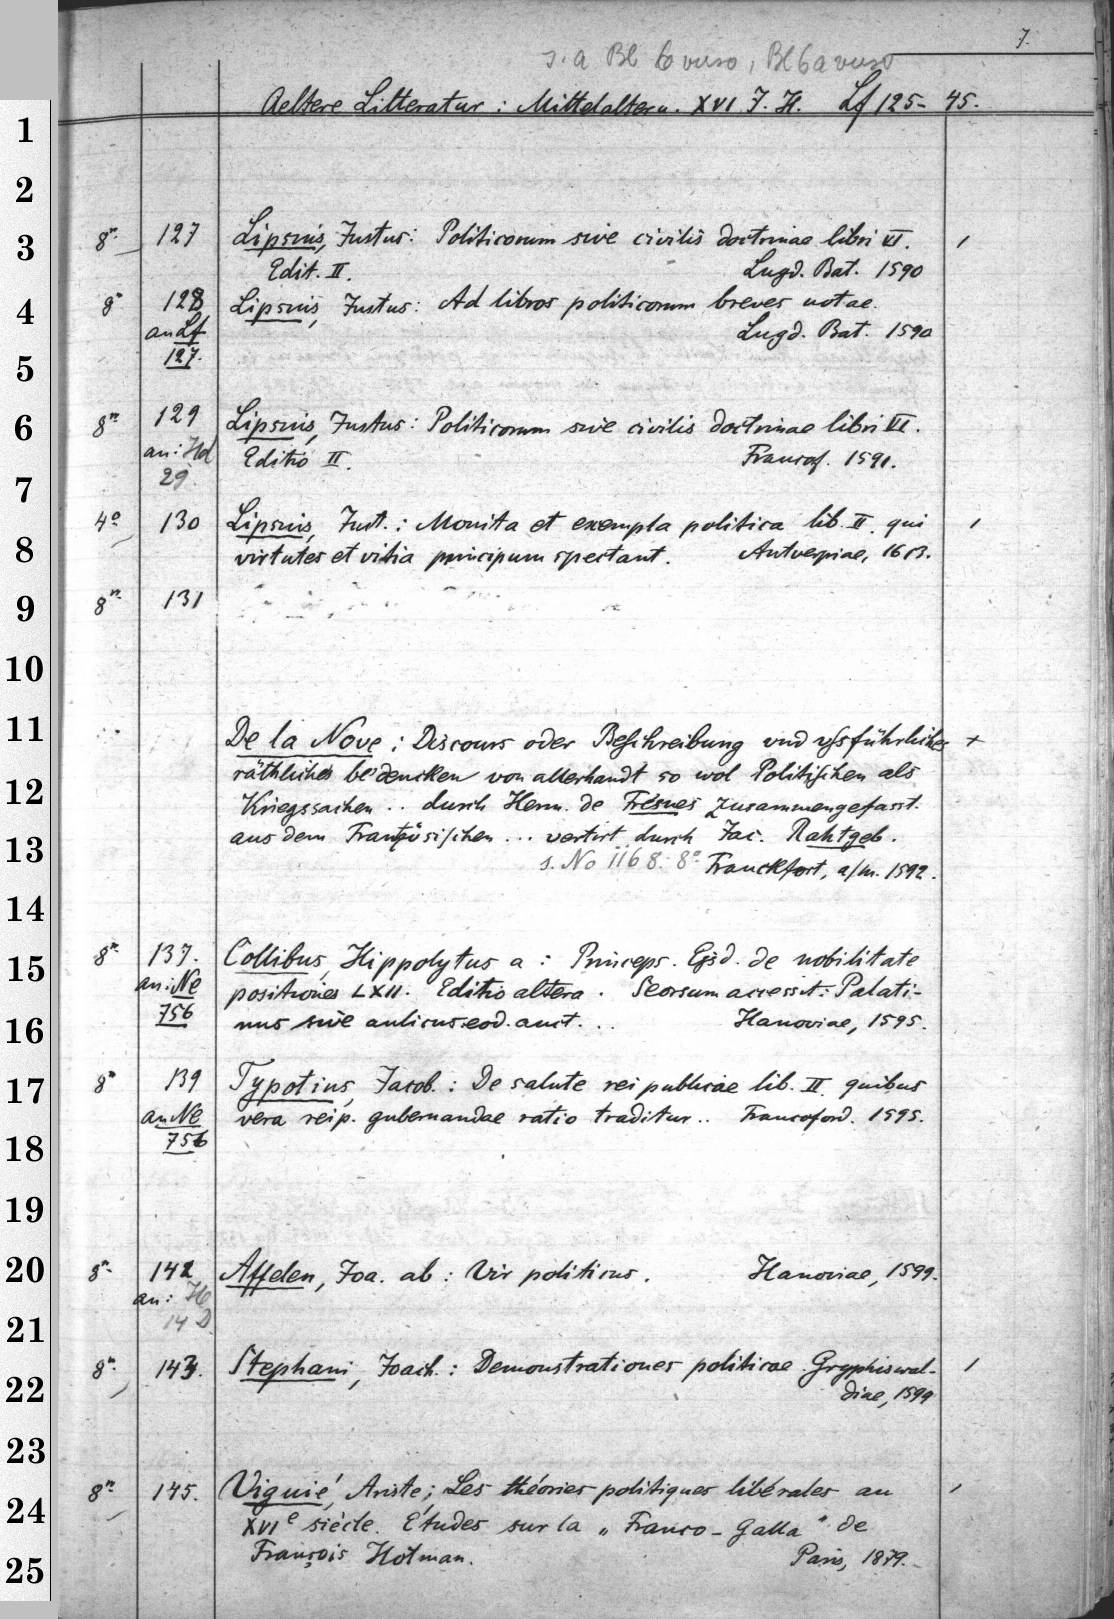 7.
s. a Bl 6 verso, Bl 6a verso
Aeltere Litteratur: Mittelalter u. XVI J. H. Lf 125- 45.
1
2
3 8º 127 Lipsius, Justus: Politicorum sive civilis doctrinae libri VI.
Edit. II. Lugd. Bat. 1590
4 8º 128 Lipsius, Justus: Ad libros politicorum breves notae.
an Lf Lugd. Bat. 1590
5 127.
6 8º 129 Lipsius, Justus: Politicorum sive civilis doctrinae libri VI.
an: Hd Editio II. Francof. 1591.
7 29.
4º 130 Lipsius, Just.: Monita et exempla politica lib. II. qui
8 virtutes et vitia principum spectant. Antverpiae, 1613.
9 8º 131
10
11 De la Nove: Discours oder Beschreibung vnd vsführliches +
räthliches bedencken von allerhandt so wol Politischen als
12 Kriegssachen .. durch Herrn. de Fresnes zusammengefasst.
aus dem Frantzösischen ... vertirt durch Jac. Rahtgeb.
13 s. No 1168. 8º Franckfort, a/m. 1592.
14
15 8º 137. Collibus, Hippolytus a: Princeps. Ejsd. de nobilitate
an: Ne positiones LXII. Editio altera. Seorsum accessit: Palati-
16 756 nus sive aulicus eod. auct. .. Hanoviae, 1595.
17 8º 139 Typotius, Jacob.: De salute rei publicae lib. II. quibus
an Ne vera reip. gubernandae ratio traditur .. Francoford. 1595.
18 756
19
20 8º 142 Affelen, Joa. ab: Vir politicus. Hanoviae, 1599.
an:
21 14 D
8º 143. Stephani, Joach.: Demonstrationes politicae. Gryphiswal-
22 diae, 1599
23
8º 145. Viguié, Ariste; Les théories politiques libérales au
24 XVIe siècle. Études sur la „Franco-Gallia" de
François Hotman. Paris, 1879.
25